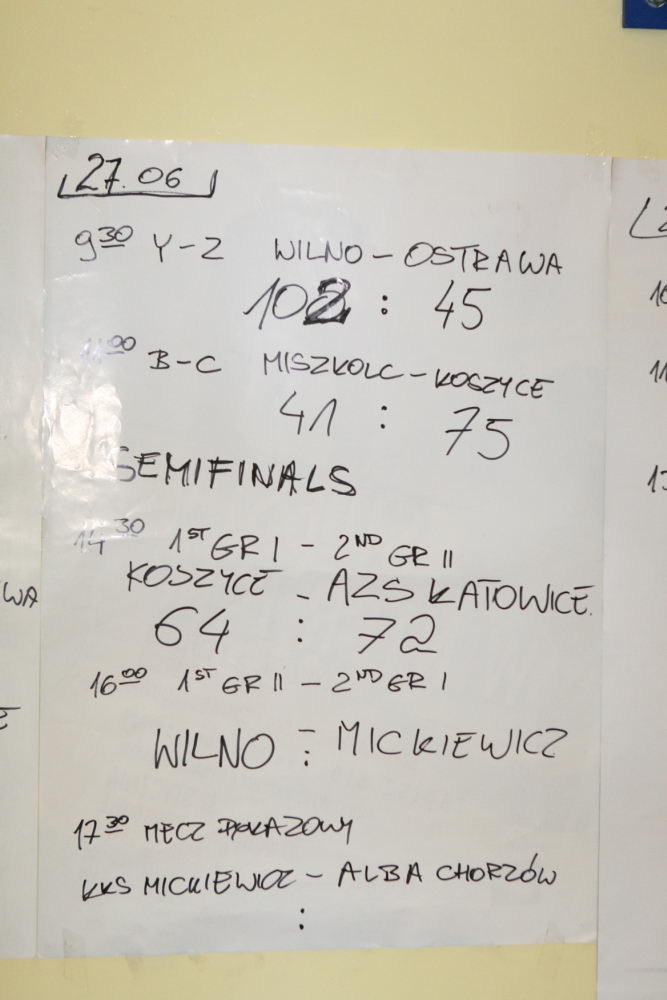 27.06
9 30 Y-Z WILNO - OSTRAWA
102 : 45
11 00 B-C MISZKOLC - KOSZYCE
41 : 75
SEMIFINALS
14 30 1ST GR I - 2ND GR II
KOSZYCE - AZS KATOWICE.
64 : 72
16 00 1ST GR II - 2ND GR I
WILNO - : MICKIEWICZ
17 30 MECZ POKAZOWY
KKS MICKIEWICZ - ALBA CHORZÓW
:
WA
10
11